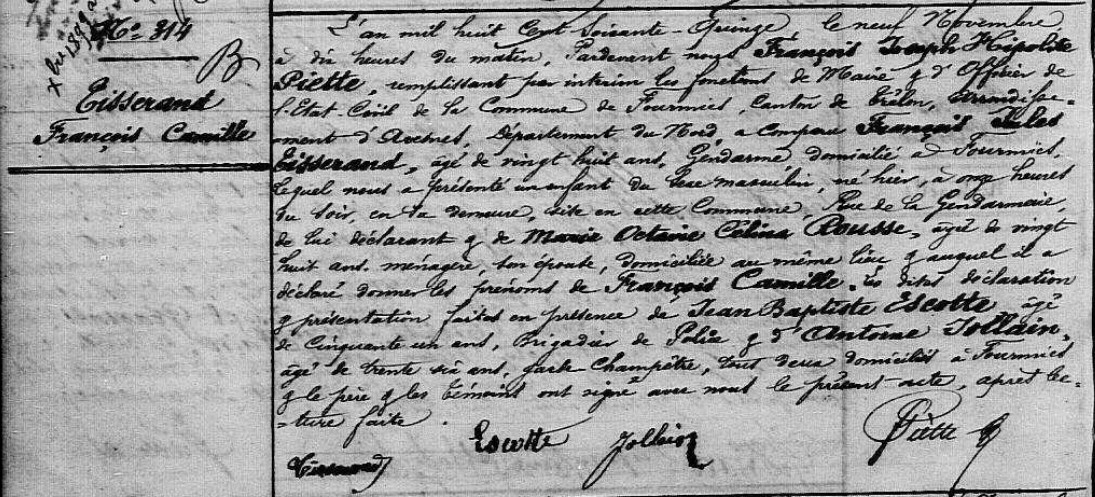 Nº 314
B
Tisserand
François Camille
L'an mil huit Cent Soixante-Quinze le neuf Novembre
à dix heures du matin, Pardevant nous François Joseph Hipolite
Piette, remplissant par intérim les fonctions de Maire & d'Officier de
l'Etat-Civil de la Commune de Fourmies, Canton de Trélon, arrondisse-
-ment d'Avesnes, Département du Nord, a Comparu François Jules
Tisserand, âgé de vingt huit ans, Gendarme domicilié à Fourmies,
lequel nous a présenté un enfant du Sexe masculin, né hier, à onze heures
du Soir, en sa demeure, site en cette Commune, Rue de la Gendarmerie,
de lui déclarant & de Marie Octavie Célina Rousse, âgée de vingt
huit ans, ménagère, son épouse, domiciliée au même lieu & auquel il a
déclaré donner les prénoms de François Camille. Les dites déclaration
& présentation faites en présence de Jean Baptiste Escotte, âgé
de Cinquante un ans, Brigadier de Police & d'Antoine Jollain,
âgé de trente six ans, garde-Champêtre, tous deux domiciliés à Fourmies
& le père & les témoins ont signé avec nous le présent acte, après lec-
-ture faite.
Escotte Jollain Piette
Tisserand